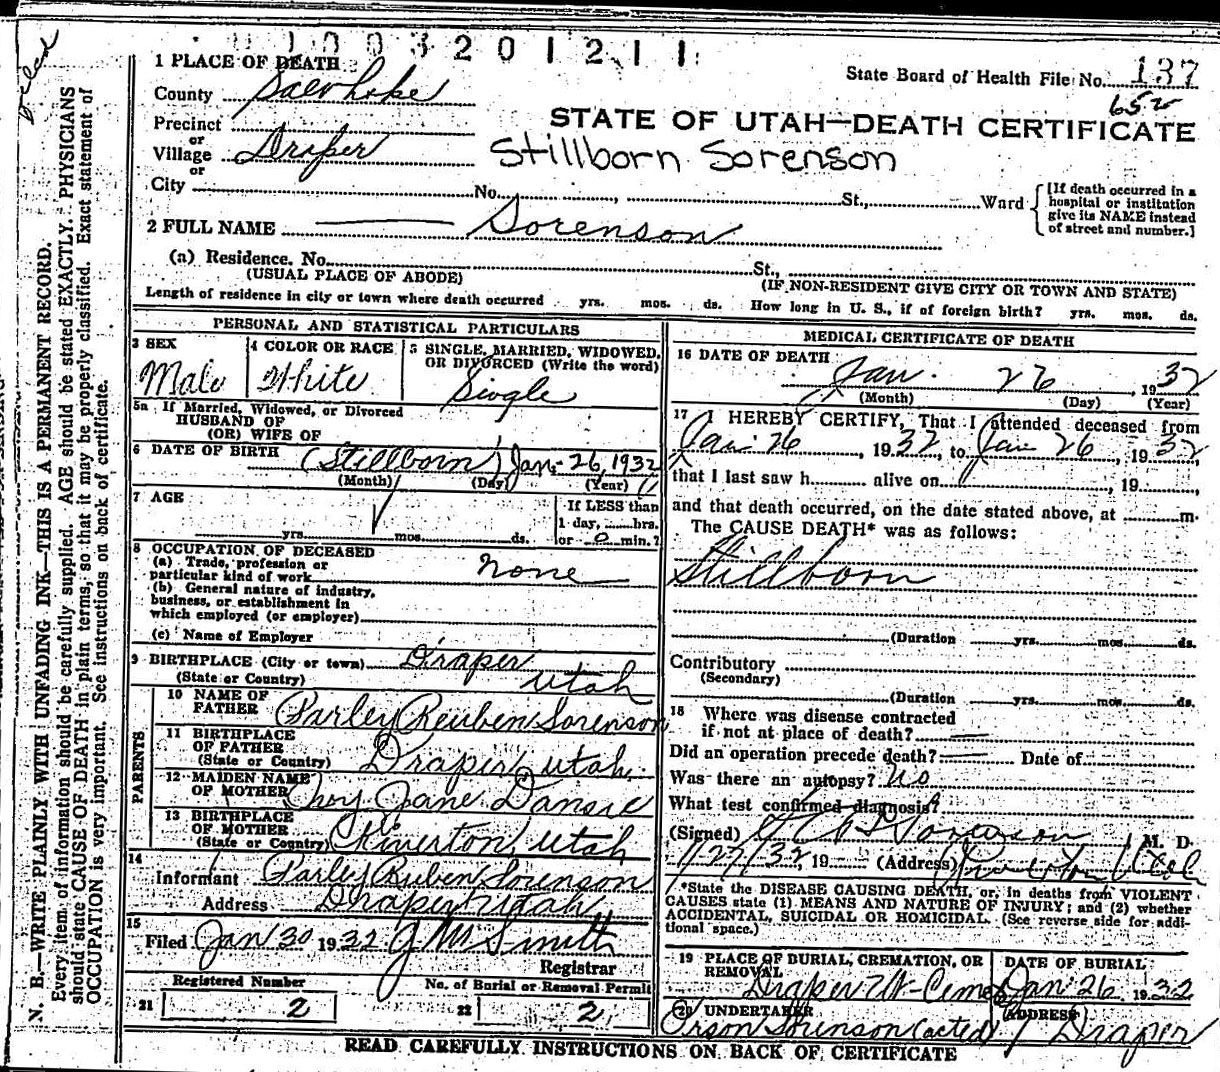 1003201211
1 PLACE OF DEATH
State Board of Health File No. 137
652
County Salt Lake
STATE OF UTAH—DEATH CERTIFICATE
Precinct
or
Village Draper
Stillborn Sorenson
or
City No. , St., Ward
[If death occurred in a hospital or institution give its NAME instead of street and number.]
2 FULL NAME Sorenson
(a) Residence. No. St.,
(USUAL PLACE OF ABODE) (IF NON-RESIDENT GIVE CITY OR TOWN AND STATE)
Length of residence in city or town where death occurred yrs. mos. ds. How long in U. S., if of foreign birth? yrs. mos. ds.
PERSONAL AND STATISTICAL PARTICULARS
3 SEX
Male
4 COLOR OR RACE
White
5 SINGLE, MARRIED, WIDOWED,
OR DIVORCED (Write the word)
Single
5a If Married, Widowed, or Divorced
HUSBAND OF
(OR) WIFE OF
6 DATE OF BIRTH (Stillborn) Jan. 26, 1932
(Month) (Day) (Year)
7 AGE
If LESS than
1 day, hrs.
yrs. mos. ds. or 0 min.?
8 OCCUPATION OF DECEASED
(a) Trade, profession or
particular kind of work none
(b) General nature of industry,
business, or establishment in
which employed (or employer)
(c) Name of Employer
9 BIRTHPLACE (City or town) Draper
(State or Country) Utah
PARENTS
10 NAME OF
FATHER Parley Reuben Sorenson
11 BIRTHPLACE
OF FATHER
(State or Country) Draper, Utah.
12 MAIDEN NAME
OF MOTHER Jane Dansie
13 BIRTHPLACE
OF MOTHER
(State or Country) Riverton, Utah
14
Informant Parley Ruben Sorenson
Address Draper Utah
15
Filed Jan 30 1932 J M Smith
Registrar
Registered Number
21 2
No. of Burial or Removal Permit
22 2
MEDICAL CERTIFICATE OF DEATH
16 DATE OF DEATH
Jan. 26 1932
(Month) (Day) (Year)
17 I HEREBY CERTIFY, That I attended deceased from
Jan 26, 1932, to Jan 26, 1932,
that I last saw h alive on , 19 ,
and that death occurred, on the date stated above, at m.
The CAUSE DEATH* was as follows:
Stillborn
(Duration yrs. mos. ds.
Contributory
(Secondary)
(Duration yrs. mos. ds.
18 Where was disease contracted
if not at place of death?
Did an operation precede death? Date of
Was there an autopsy? No
What test confirmed diagnosis?
(Signed) Sorenson M. D.
1/27/32 19 (Address)
*State the DISEASE CAUSING DEATH, or, in deaths from VIOLENT
CAUSES state (1) MEANS AND NATURE OF INJURY; and (2) whether
ACCIDENTAL, SUICIDAL OR HOMICIDAL. (See reverse side for addi-
tional space.)
19 PLACE OF BURIAL, CREMATION, OR
REMOVAL
Draper Ut-Cem
DATE OF BURIAL
Jan 26 1932
20 UNDERTAKER
Orson Sorenson (acted)
(ADDRESS)
Draper
READ CAREFULLY INSTRUCTIONS ON BACK OF CERTIFICATE
N. B.—WRITE PLAINLY WITH UNFADING INK—THIS IS A PERMANENT RECORD.
Every item of information should be carefully supplied. AGE should be stated EXACTLY. PHYSICIANS
should state CAUSE OF DEATH in plain terms, so that it may be properly classified. Exact statement of
OCCUPATION is very important. See instructions on back of certificate.